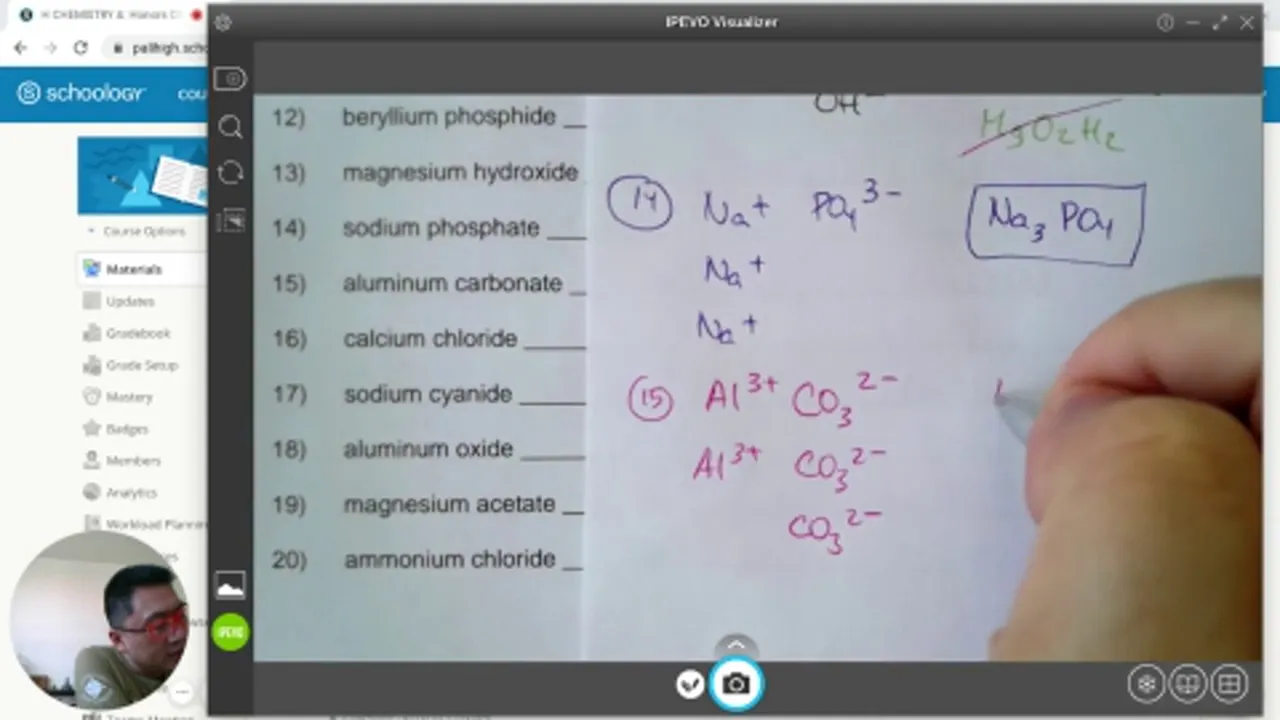 H CHEMISTRY & Honors C
IPEVO Visualizer
palihigh.scho
schoology
COU
Course Options
Materials
Updates
Gradebook
Grade Setup
Mastery
Badges
Members
Analytics
Workload Plannin
12) beryllium phosphide __
13) magnesium hydroxide
14) sodium phosphate ___
15) aluminum carbonate _
16) calcium chloride _____
17) sodium cyanide ______
18) aluminum oxide _____
19) magnesium acetate __
20) ammonium chloride _
OH⁻
H₃O₂H₂
14 Na⁺ PO₄³⁻ Na₃PO₄
Na⁺
Na⁺
15 Al³⁺ CO₃²⁻
Al³⁺ CO₃²⁻
CO₃²⁻
IPEVO